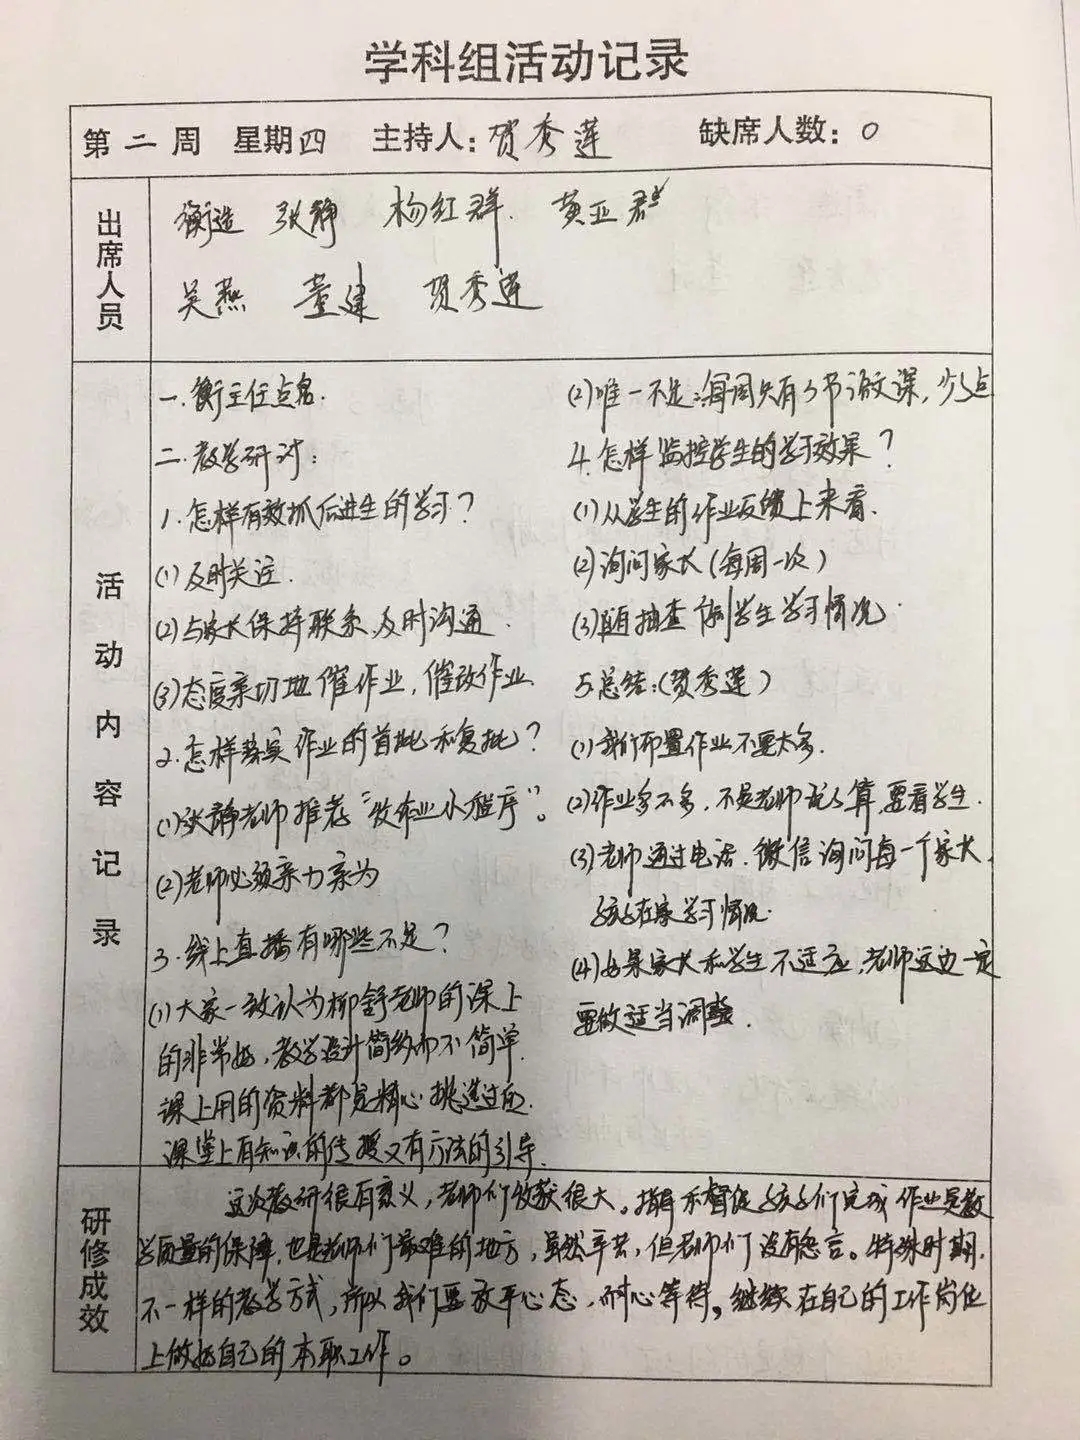 学科组活动记录
第二周 星期四 主持人:贺秀莲 缺席人数:0
出席人员
衡造 张静 杨红群. 黄亚群
吴燕 董建 贺秀莲
活动内容记录
一.衡主任点名.
二.教学研讨:
1.怎样有效抓后进生的学习?
(1)及时关注.
(2)与家长保持联系,及时沟通.
(3)态度亲切地催作业,催改作业.
2.怎样落实作业的首批和复批?
(1)张静老师推荐“收作业小程序”。
(2)老师必须亲力亲为
3.线上直播有哪些不足?
(1)大家一致认为柳舒老师的课上
的非常好,教学设计简约而不简单.
课上用的资料都是精心挑选过的.
课堂上有知识的传授又有方法的引导.
(2)唯一不足:每周只有3节语文课,少了点
4.怎样监控学生的学习效果?
(1)从学生的作业反馈上来看.
(2)询问家长(每周一次)
(3)随抽查个别学生学习情况.
5.总结:(贺秀莲)
(1)我们布置作业不要太多.
(2)作业多不多,不是老师说了算,要看学生.
(3)老师通过电话.微信询问每一个家长,
孩子在家学习情况.
(4)如果家长和学生不适应,老师这边一定
要做适当调整.
研修成效
这次教研很有意义,老师们收获很大。指导和督促孩子们完成作业是教
学质量的保障,也是老师们最难的地方,虽然辛苦,但老师们没有怨言。特殊时期,
不一样的教学方式,所以我们要放平心态,耐心等待,继续在自己的工作岗位
上做好自己的本职工作。